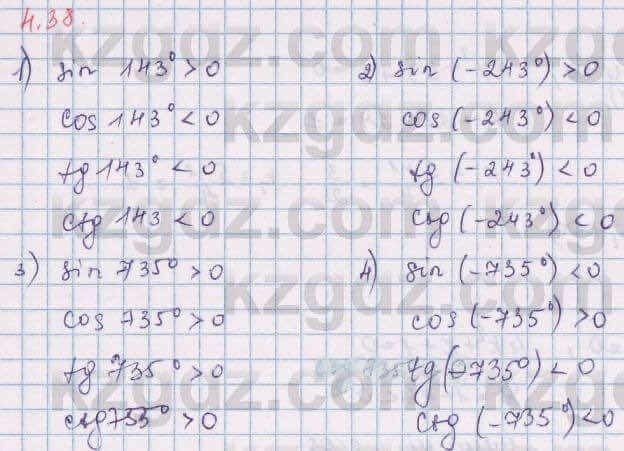 4.38.
1) sin 143° > 0
cos 143° < 0
tg 143° < 0
ctg 143 < 0
2) sin (-243°) > 0
cos (-243°) < 0
tg (-243°) < 0
ctg (-243°) < 0
3) sin 735° > 0
cos 735° > 0
tg 735° > 0
ctg 735° > 0
4) sin (-735°) < 0
cos (-735°) > 0
tg (-735°) < 0
ctg (-735°) < 0
kzgdz.com
kzgdz.com
kzgdz.com
kzgdz.com
kzgdz.com
kzgdz.com